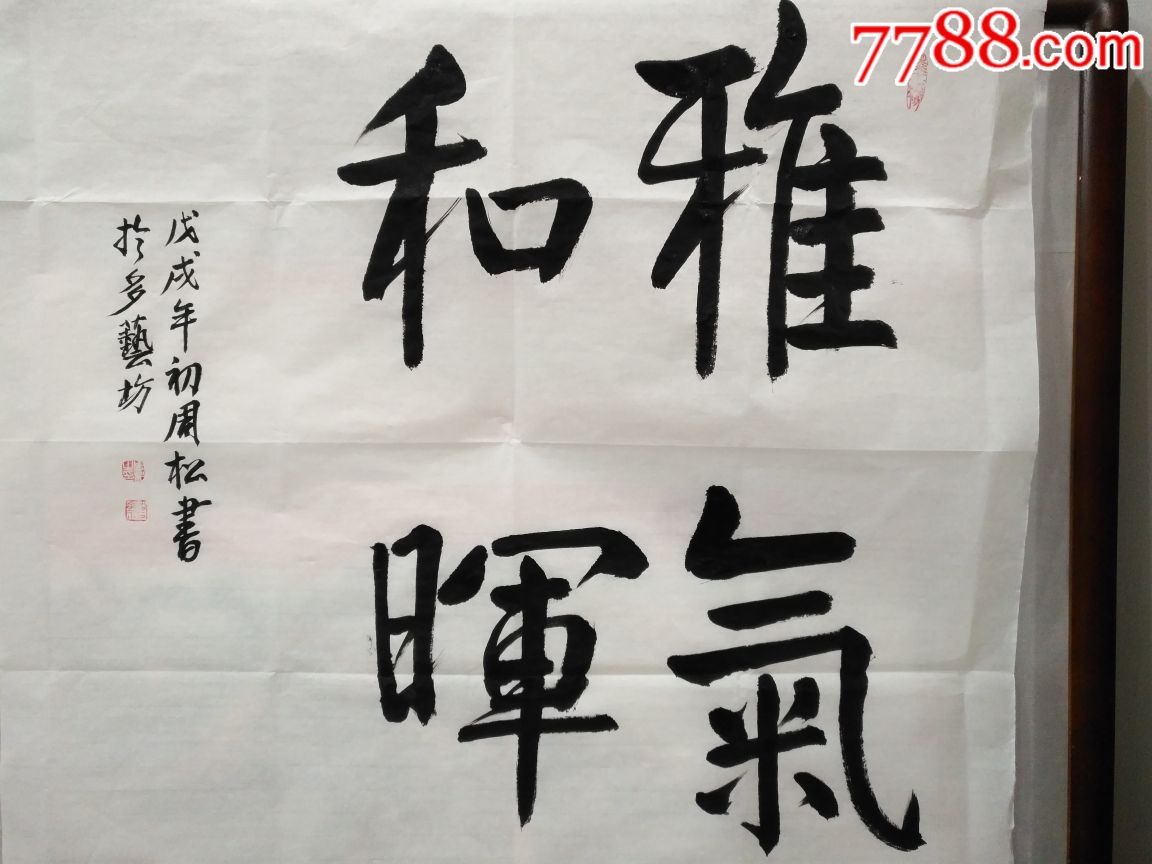 7788.com
雅氣
和暉
戊戌年初周松書
於多藝坊